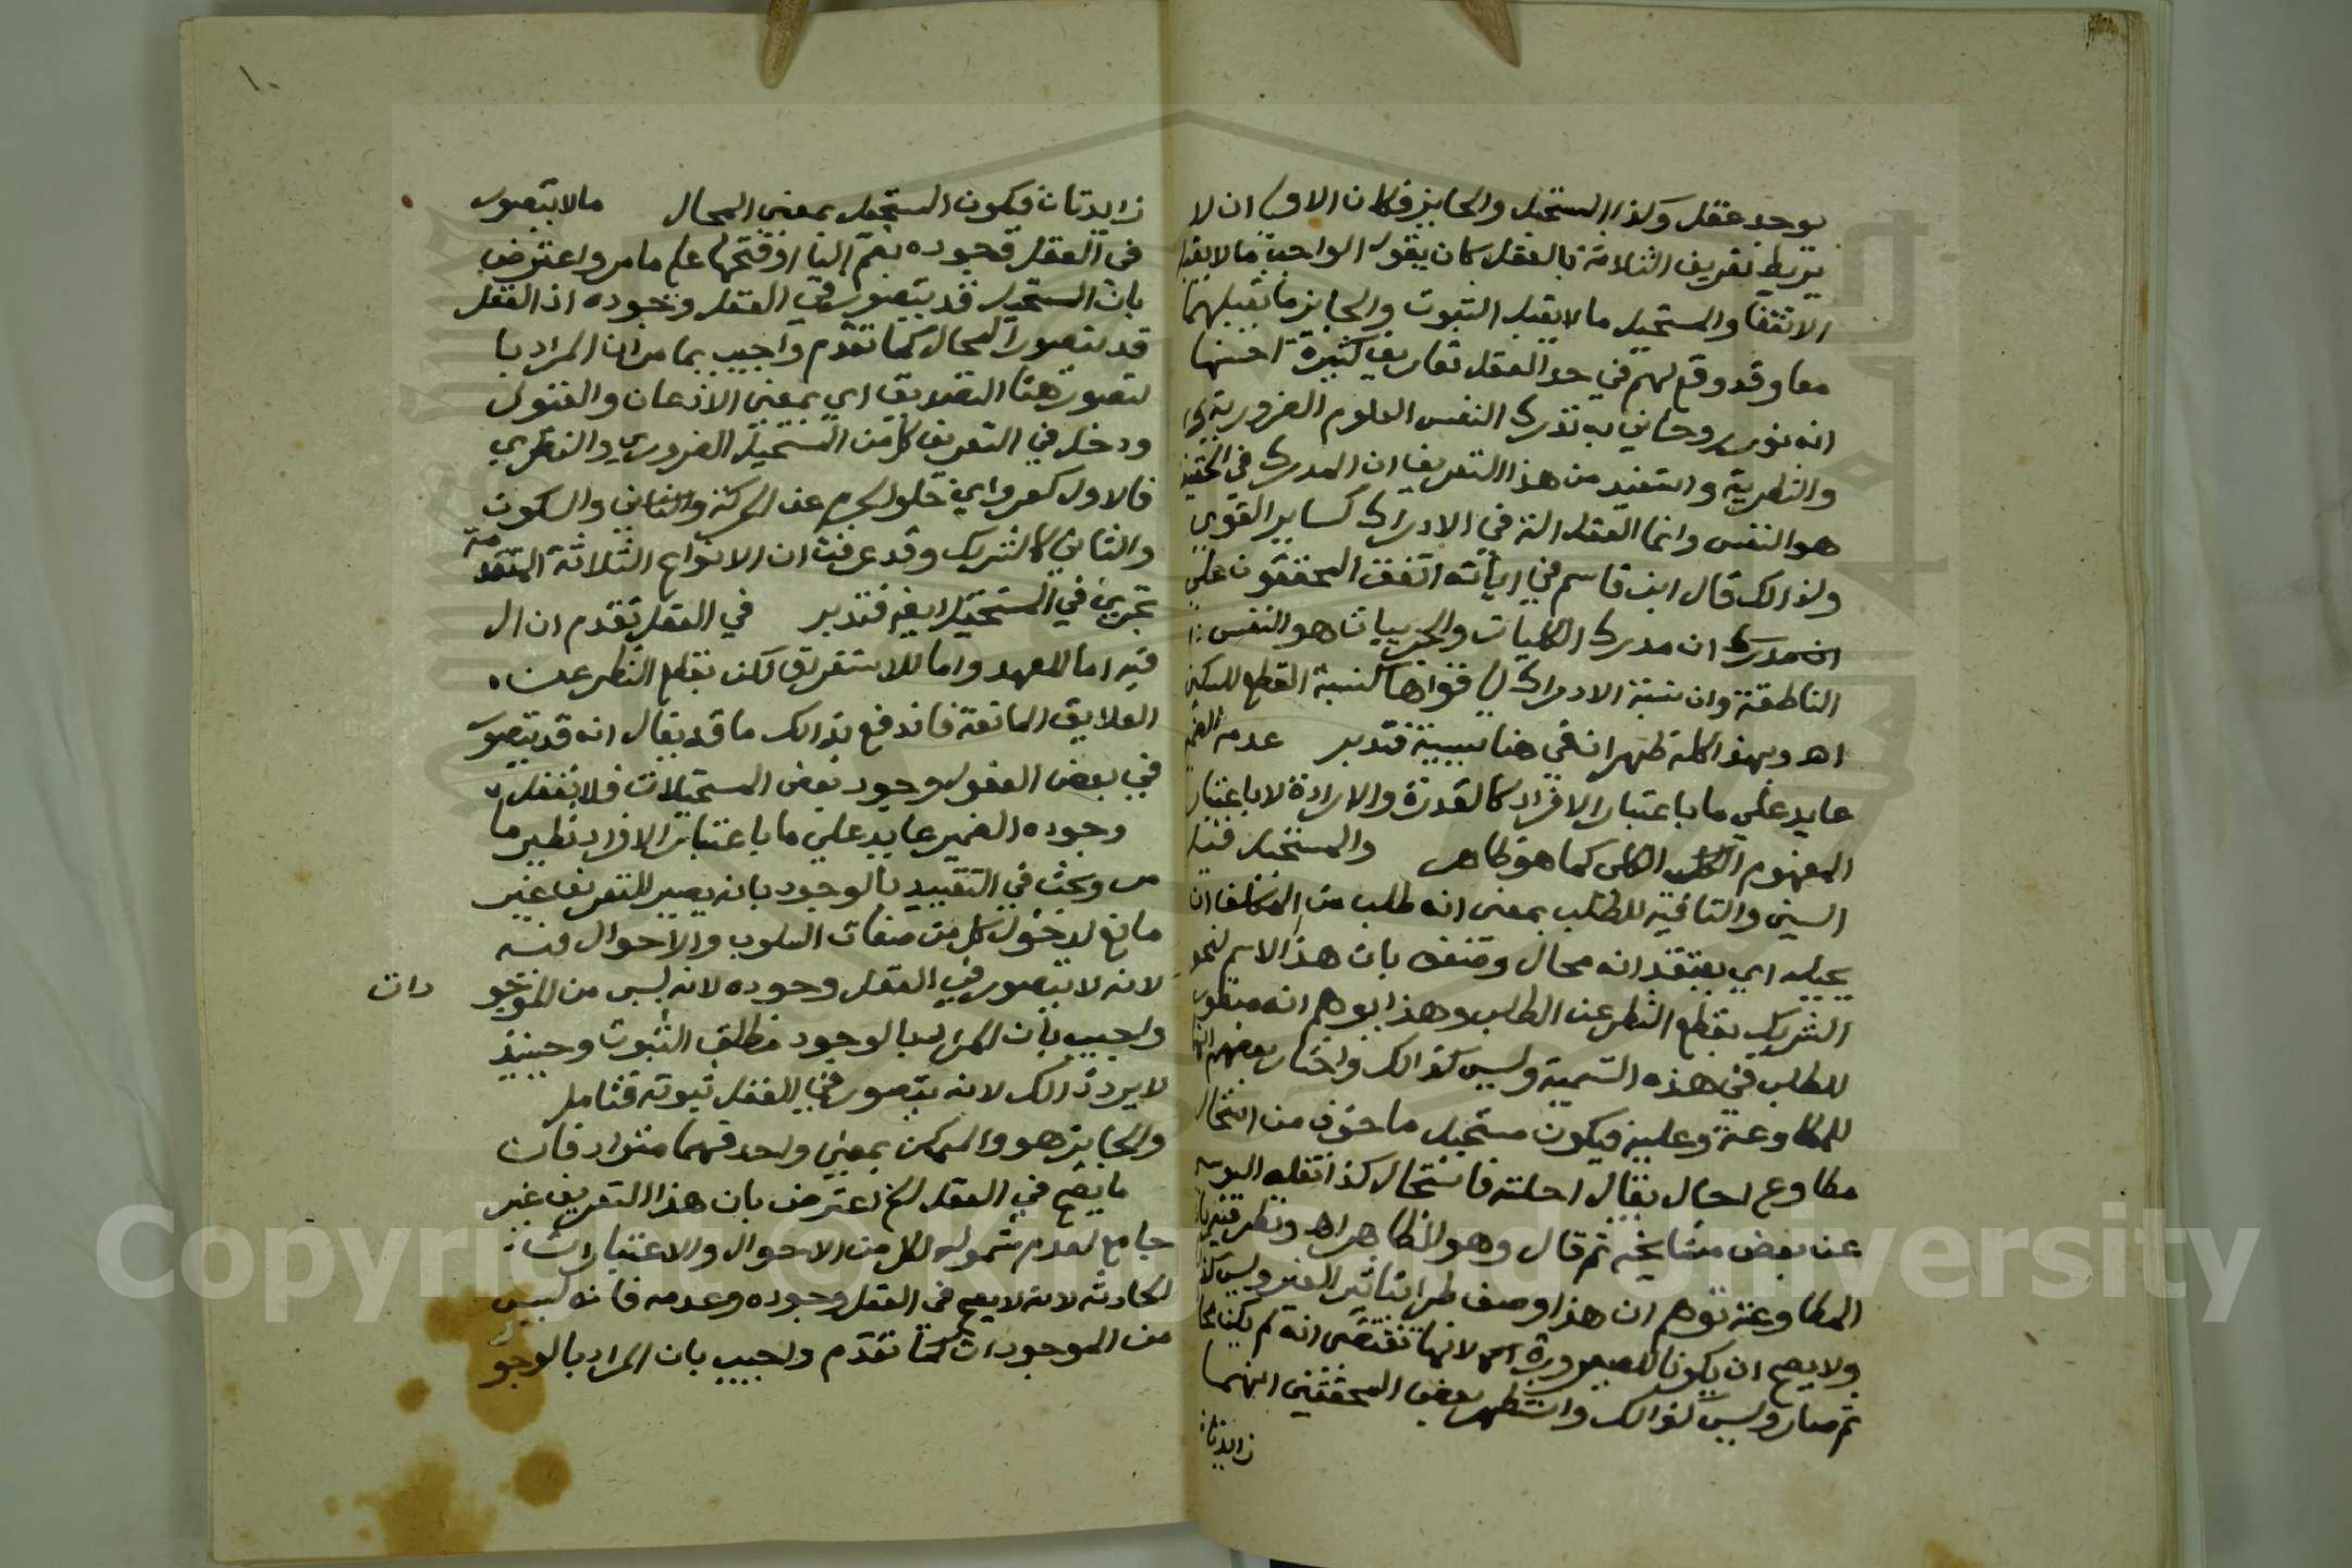 يوجد عقل وكذا المستحيل والجايز فكان الاولى ان لا
يربط تعريف الثلاثة بالعقل كان يقول الواجب ما لا يقبل
الانتفا والمستحيل ما لا يقبل الثبوت والجايز ما يقبلهما
معا وقد وقع لهم في حد العقل تعاريف كثيرة احسنها
انه نور روحاني به تدرك النفس العلوم الضرورية
والنظرية واستفيد من هذا التعريف ان المدرك في الحقيقة
هو النفس وانما العقل الة في الادراك كساير القوي
ولذالك قال ابن قاسم في اياته اتفق المحققون علي
ان مدرك الكليات والجزييات هو النفس
الناطقة وان نسبة الادراك الي قواها كنسبة القطع للسكين
اهـ وبهذا كله ظهر ان في هنا سببية فتدبر عدمه الضمير
عايد علي ما باعتبار الافراد كالقدرة والارادة لا باعتبار
المفهوم الكلى كما هو ظاهر والمستحيل قيل
السين والتا فيه للطلب بمعنى انه طلب من المكلف ان
يحيله اي يعتقد انه محال وضعف بان هذا الاسم لنحو
الشريك بقطع النظر عن الطلب وهذا يوهم انه منظور
للطلب في هذه التسمية وليس كذالك واختار بعضهم انها
للمطاوعة وعليه فيكون مستحيل ماخوذ من استحال
مطاوع احال يقال احلته فاستحال كذا نقله
عن بعض مشايخه ثم قال وهو الظاهر اهـ ونظر فيه بان
المطاوعة توهم ان هذا وصف طرا بتاثير الغير وليس كذ
ولا يصح ان يكونا للصيرورة لانها تقتضى انه لم يكن محا
ثم صار وليس كذالك واستظهر بعض المحققين انهما
زايدتان
١٠
زايدتان فيكون المستحيل بمعنى المحال ما لا يتصور
في العقل وجوده بضم اليا او فتحها علي ما مر واعترض
بان المستحيل قد يتصور في العقل وجوده اذ العقل
قد يتصور المحال كما تقدم واجيب بما مر ان المراد با
لتصور هنا التصديق اي بمعني الاذعان والقبول
ودخل في التعريف كل من المستحيل الضروري والنظري
فالاول كعرو اي خلو الجرم عن الحركة والسكون
والثاني كالشريك وقد عرفت ان الانواع الثلاثة المتقدمة
تجري في المستحيل ايضا فتدبر في العقل تقدم ان ال
فيه اما للعهد واما للاستغراق لكن بقطع النظر عن
العلايق المانعة فاندفع بذالك ما قد يقال انه قد يتصور
في بعض العقول وجود بعض المستحيلات فلا تغفل
وجوده الضمير عايد علي ما باعتبار الافراد نظير ما
مر وبحث في التقييد بالوجود بانه يصير التعريف غير
مانع لدخول كل من صفات السلوب والاحوال فيه
لانه لا يتصور في العقل وجوده لانه ليس من الموجودات
واجيب بان المراد بالوجود مطلق الثبوت وحينئذ
لا يرد ذالك لانه يتصور في العقل ثبوته فتامل
والجايز هو والممكن بمعني واحد فهما مترادفان
ما يصح في العقل الخ اعترض بان هذا التعريف غير
جامع لعدم شموله لكل من الاحوال والاعتبارات
الحادثة لانه لا يصح في العقل وجوده وعدمه فانه ليس
من الموجودات كما تقدم واجيب بان المراد بالوجو
Copyright © King Saud University